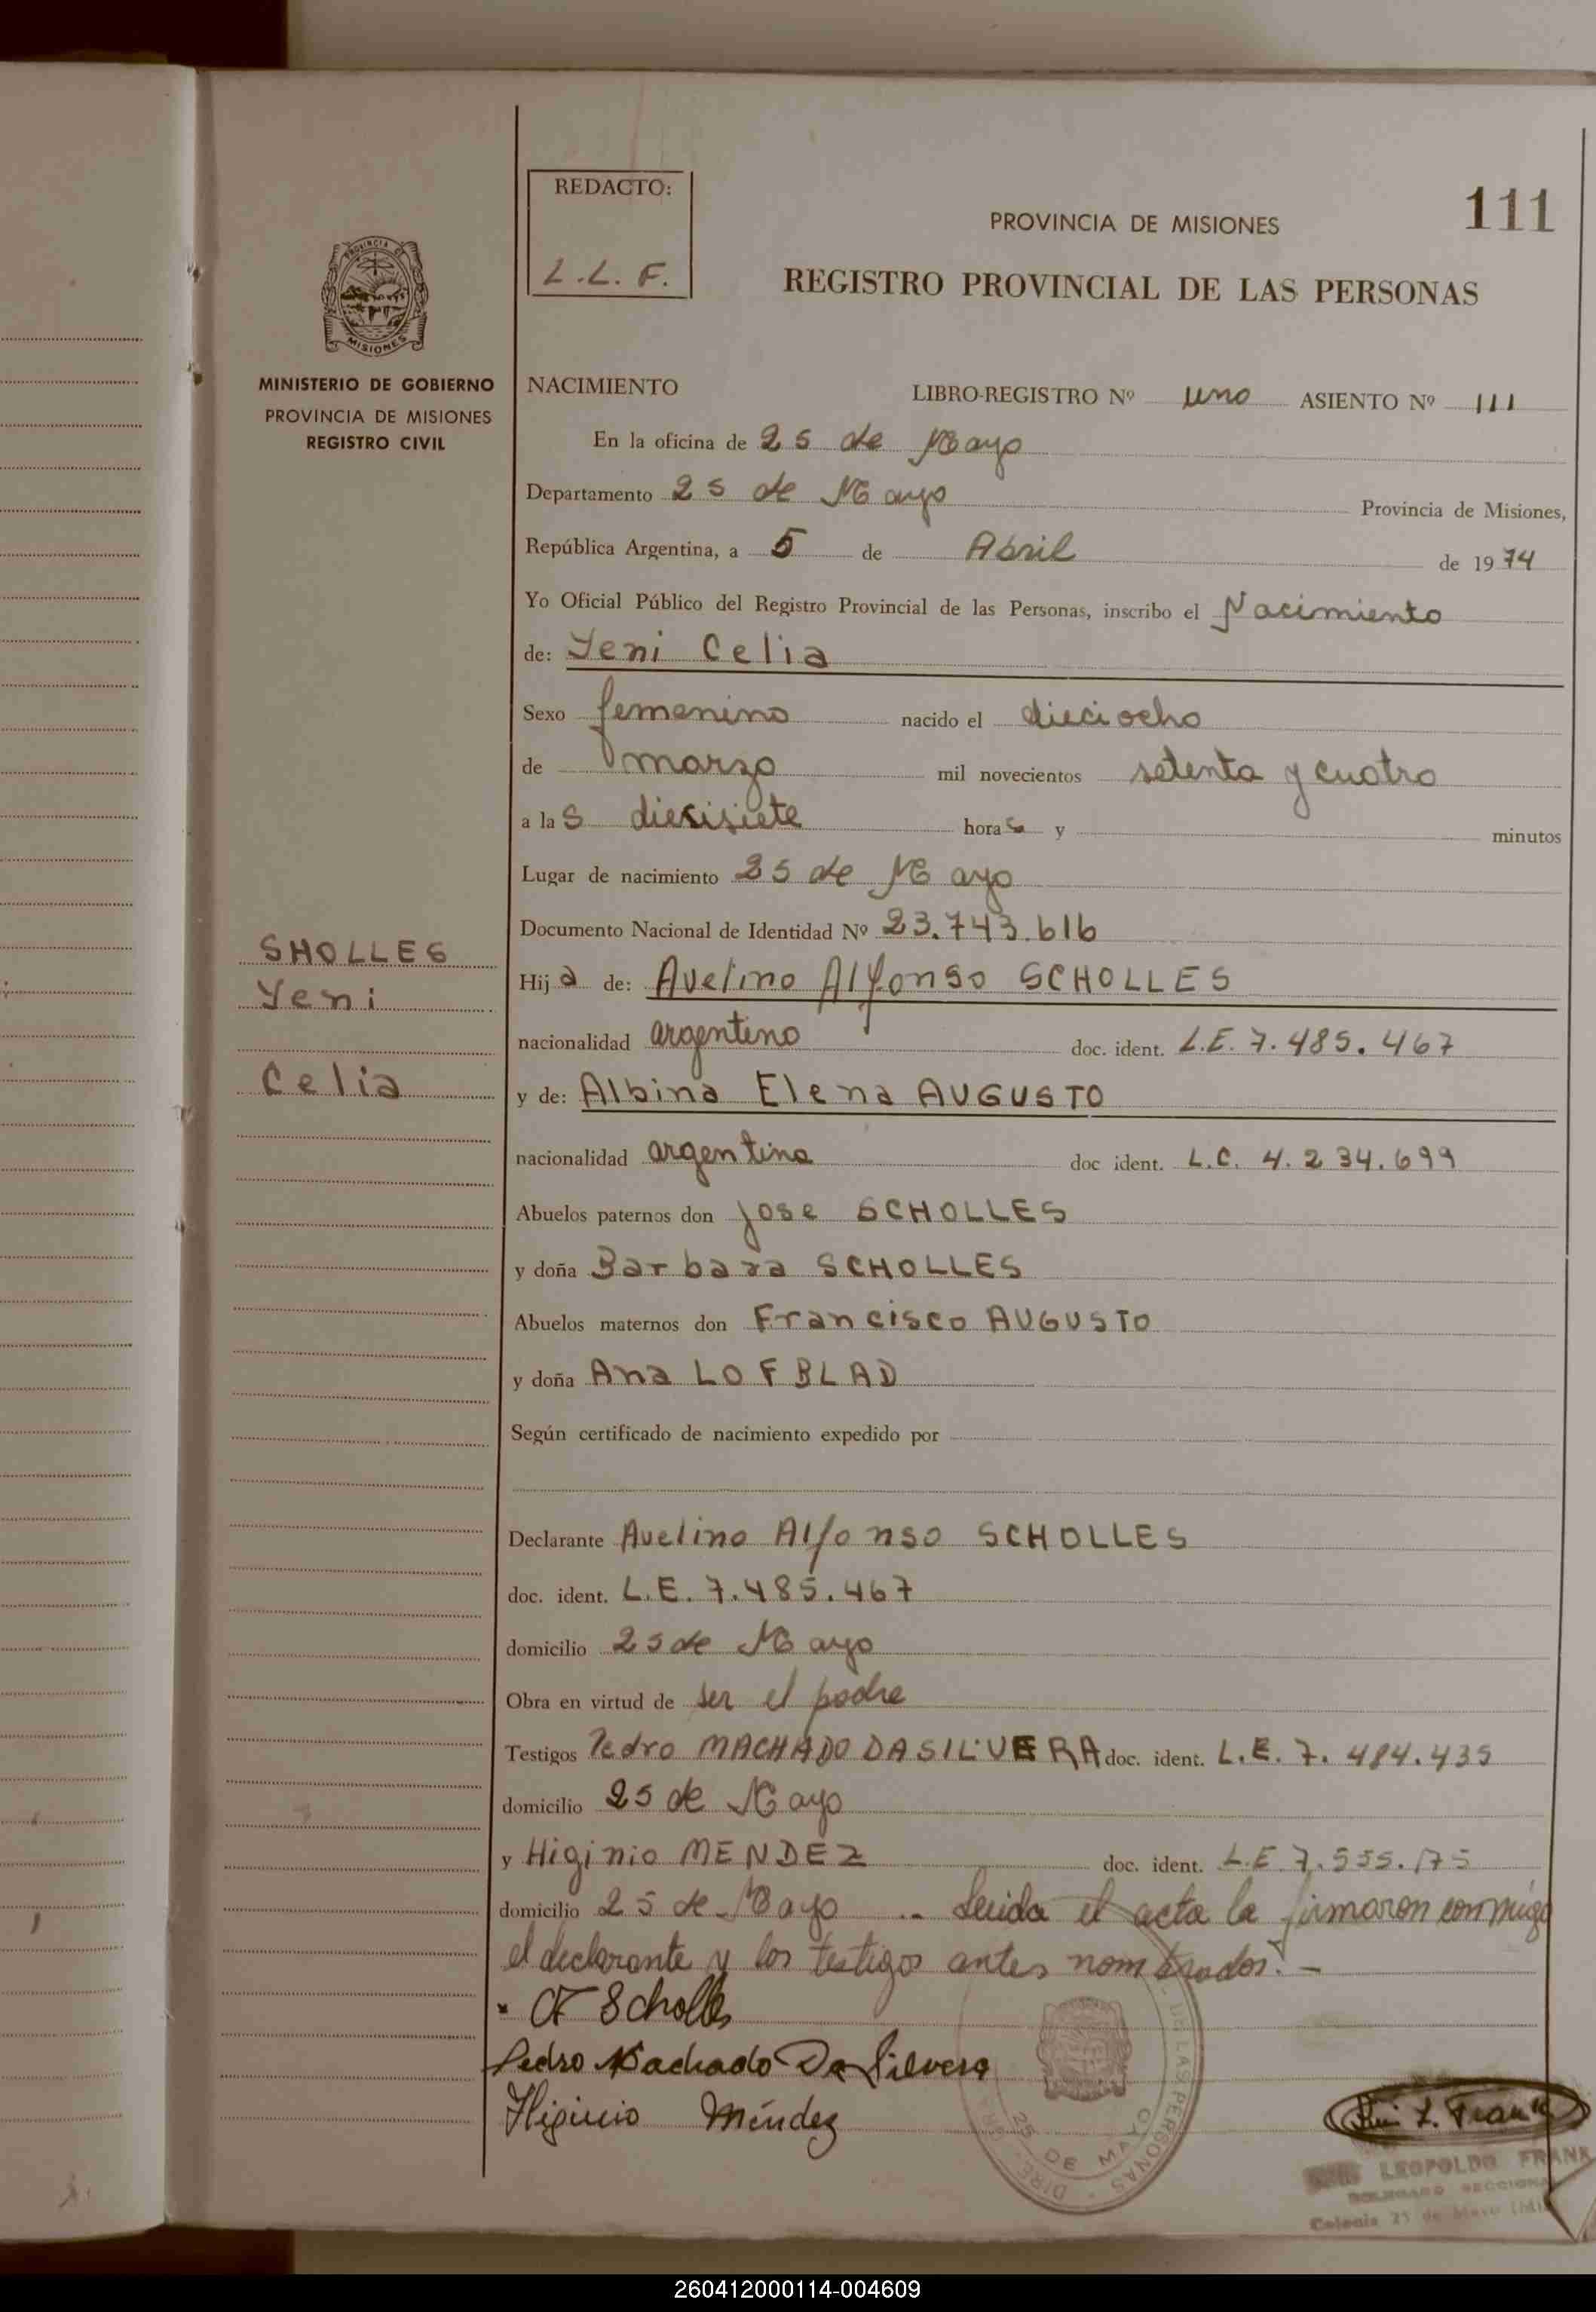 REDACTO:
L.L.F.
PROVINCIA DE MISIONES
111
REGISTRO PROVINCIAL DE LAS PERSONAS
PROVINCIA DE
MISIONES
MINISTERIO DE GOBIERNO
PROVINCIA DE MISIONES
REGISTRO CIVIL
NACIMIENTO LIBRO-REGISTRO Nº uno ASIENTO Nº 111
En la oficina de 25 de Mayo
Departamento 25 de Mayo Provincia de Misiones,
República Argentina, a 5 de Abril de 1974
Yo Oficial Público del Registro Provincial de las Personas, inscribo el Nacimiento
de: Yeni Celia
Sexo femenino nacido el dieciocho
de marzo mil novecientos setenta y cuatro
a las diesisiete horas y minutos
Lugar de nacimiento 25 de Mayo
Documento Nacional de Identidad Nº 23.743.616
SHOLLES
Yeni
Celia
Hija de: Avelino Alfonso SCHOLLES
nacionalidad argentino doc. ident. L.E. 7.485.467
y de: Albina Elena AUGUSTO
nacionalidad argentina doc ident. L.C. 4.234.699
Abuelos paternos don Jose SCHOLLES
y doña Barbara SCHOLLES
Abuelos maternos don Francisco AUGUSTO
y doña Ana LOFBLAD
Según certificado de nacimiento expedido por
Declarante Avelino Alfonso SCHOLLES
doc. ident. L.E. 7.485.467
domicilio 25 de Mayo
Obra en virtud de ser el padre
Testigos Pedro MACHADO DA SILVERA doc. ident. L.E. 7.484.435
domicilio 25 de Mayo
y Higinio MENDEZ doc. ident. L.E 7.555.175
domicilio 25 de Mayo .. Leida el acta la firmaron conmigo
el declarante y los testigos antes nombrados.-
Scholles
Pedro Machado Da Silvera
Higinio Méndez
DE LAS PERSONAS - DIRE
25 DE MAYO
L. Frank
LEOPOLDO FRANK
DELEGADO SECCIONAL
Colonia 25 de Mayo
260412000114-004609